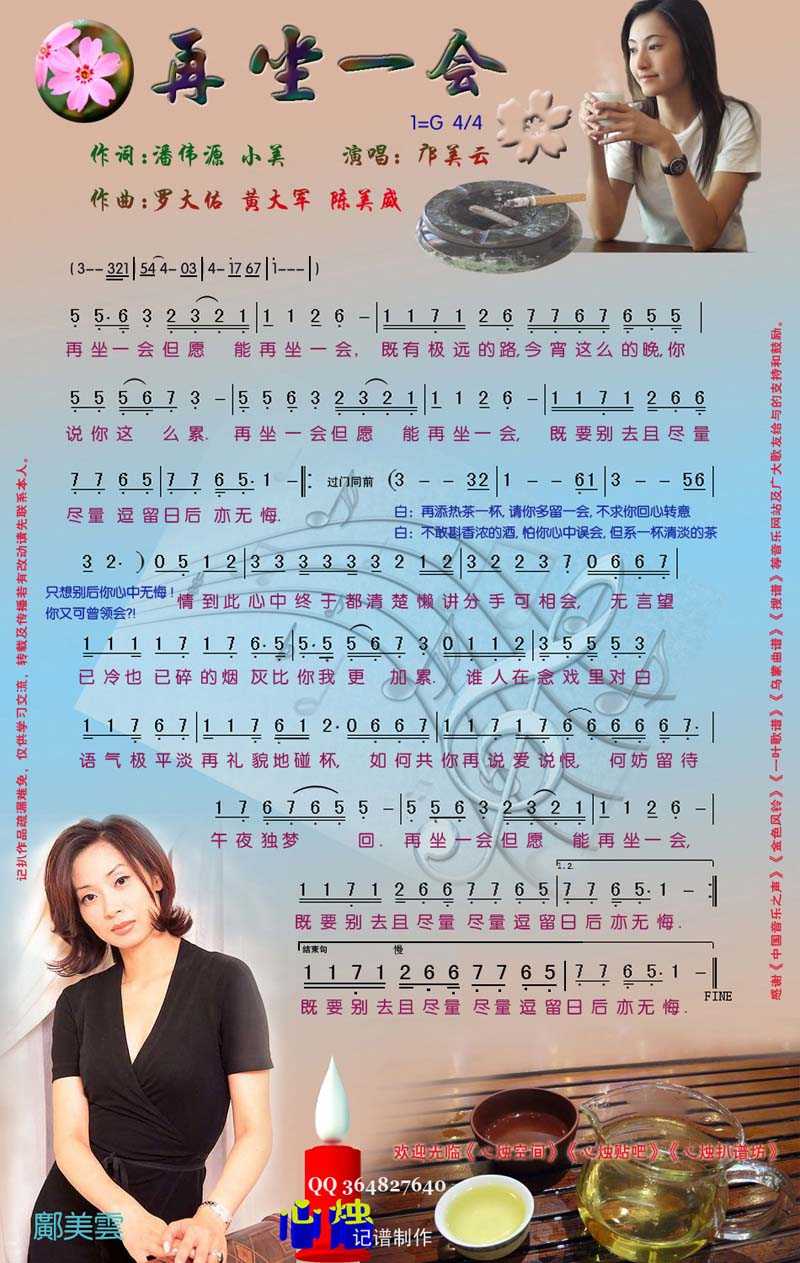 再坐一会
1=G 4/4
作词:潘伟源 小美 演唱:邝美云
作曲:罗大佑 黄大军 陈美威
(3-- 321|54 4- 03|4- 17 67|1---|)
5 5· 6 3 2 3 2 1|1 1 2 6 -|1 1 7 1 2 6 7 7 6 7 6 5 5|
再坐一会但愿 能再坐一会, 既有极远的路,今宵这么的晚,你
5 5 5 6 7 3 -|5 5 6 3 2 3 2 1|1 1 2 6 -|1 1 7 1 2 6 6
说你这 么累. 再坐一会但愿 能再坐一会, 既要别去且尽量
7 7 6 5|7 7 6 5· 1 -‖: 过门同前 (3 -- 32|1 -- 61|3 -- 56|
尽量 逗留日后 亦无悔.
白:再添热茶一杯,请你多留一会,不求你回心转意
白:不敢斟香浓的酒,怕你心中误会,但系一杯清淡的茶
3 2· )0 5 1 2|3 3 3 3 3 3 2 1 2|3 2 3 2 7 0 6 6 7|
只想别后你心中无悔!
你又可曾领会?!
情到此心中终于都清楚懒讲分手可相会, 无言望
1 1 1 1 7 1 7 6·5|5·5 5 6 7 3 0 1 1 2|3 5 5 5 5 3|
已冷也已碎的烟灰比你我更 加累. 谁人在念戏里对白
1 1 7 6 7|5 5 1 7 6 1 2· 0 6 6 7|1 1 1 7 1 7 6 6 6 6 6 7·|
语气极平淡再礼貌地碰杯, 如何共你再说爱说恨, 何妨留待
1 7 6 7 6 5 5 -|5 5 6 3 2 3 2 1|1 1 2 6 -|
午夜独梦 回. 再坐一会但愿 能再坐一会,
1.2.
1 1 7 1 2 6 6 7 7 6 5|7 7 6 5· 1 -:‖
既要别去且尽量 尽量逗留日后亦无悔.
结束句 慢
1 1 7 1 2 6 6 7 7 6 5|7 7 6 5· 1 -‖
FINE
既要别去且尽量 尽量逗留日后亦无悔.
记扒作品疏漏难免,仅供学习交流,转载及传播若有改动请先联系本人。
感谢《中国音乐之声》《金色风铃》《一叶歌谱》《乌蒙曲谱》《搜谱》等音乐网站及广大歌友给与的支持和鼓励。
欢迎光临《心烛空间》《心烛贴吧》《心烛扒谱坊》
QQ 364827640
心烛
记谱制作
鄺美雲